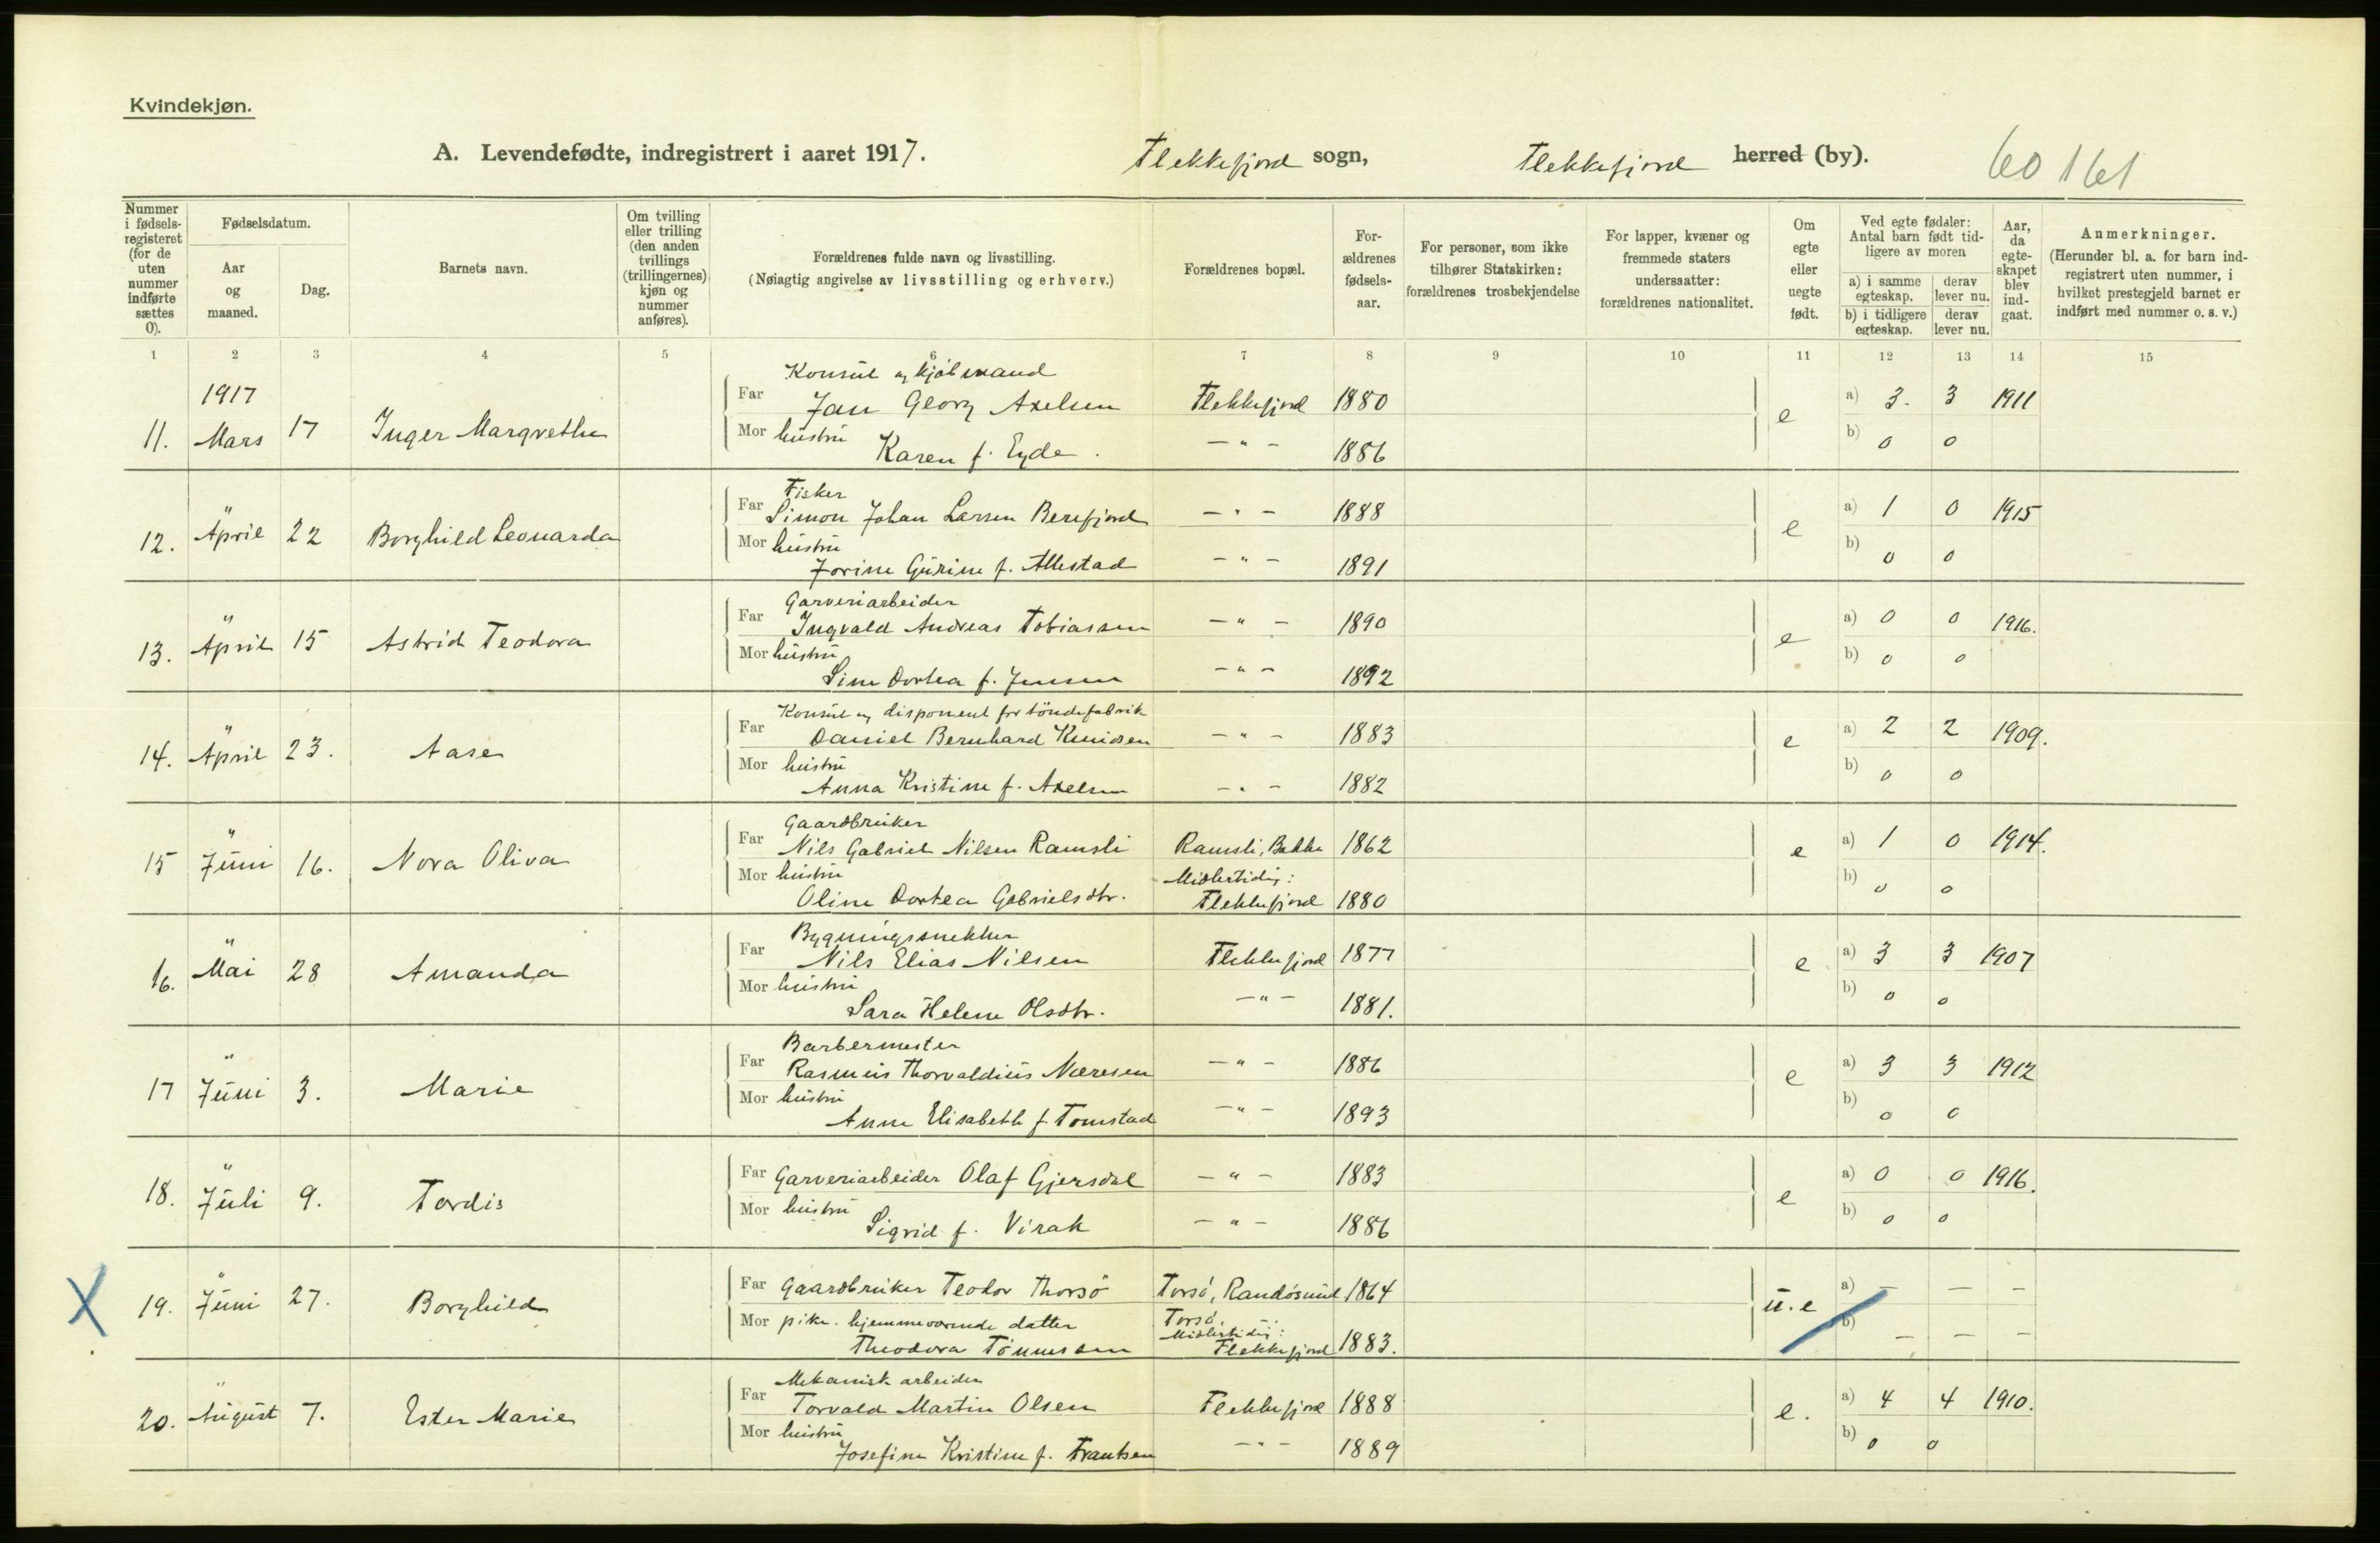 Kvindekjøn.
A. Levendefødte, indregistrert i aaret 1917. Flekkefjord sogn, Flekkefjord herred (by). 60 161
Nummer i fødselsregisteret (for de uten nummer indførte sættes 0).
Fødselsdatum.
Aar og maaned.
Dag.
Barnets navn.
Om tvilling eller trilling (den anden tvillings (trillingernes) kjøn og nummer anføres).
Forældrenes fulde navn og livsstilling.
(Nøiagtig angivelse av livsstilling og erhverv.)
Forældrenes bopæl.
Forældrenes fødselsaar.
For personer, som ikke tilhører Statskirken: forældrenes trosbekjendelse
For lapper, kvæner og fremmede staters undersaatter: forældrenes nationalitet.
Om egte eller uegte født.
Ved egte fødsler: Antal barn født tidligere av moren
a) i samme egteskap. derav lever nu.
b) i tidligere egteskap. derav lever nu.
Aar, da egteskapet blev indgaat.
Anmerkninger.
(Herunder bl. a. for barn indregistrert uten nummer, i hvilket prestegjeld barnet er indført med nummer o. s. v.)
1 2 3 4 5 6 7 8 9 10 11 12 13 14 15
Konsul og kjøbmand
1917 Far Jan Georg Axelsen Flekkefjord 1880 a) 3. 3 1911
11. Mars 17 Inger Margrethe Mor hustru Karen f. Eyde. — " — 1886 e b) 0 0
Fisker
Far Simon Johan Larsen Berefjord — " — 1888 a) 1 0 1915
12. " April 22 Borghild Leonarda Mor hustru e b) 0 0
Jorine Gurine f. Allestad — " — 1891
Garveriarbeider
Far Ingvald Andreas Tobiassen — " — 1890 a) 0 0 1916.
13. " April 15 Astrid Teodora Mor hustru e b) 0 0
Sine Dortea f. Jensen — " — 1892
Konsul og disponent for tøndefabrik
Far Daniel Bernhard Knudsen — " — 1883 a) 2 2 1909.
14. " April 23. Aase Mor hustru e b) 0 0
Anna Kristine f. Axelsen — " — 1882
Gaardbruker
Far Nils Gabriel Nilsen Ramsli Ramsli, Bakke 1862 a) 1 0 1914.
15 " Juni 16. Nora Oliva Mor hustru Midlertidig: e b) 0 0
Oline Dortea Gabrielsdtr. Flekkefjord 1880
Bygningssnekker
Far Nils Elias Nilsen Flekkefjord 1877 a) 3 3 1907
16. " Mai 28 Amanda Mor hustru e b) 0 0
Sara Helene Olsdtr. — " — 1881.
Barbermester
Far Rasmus Thorvaldius Næresen — " — 1886 a) 3 3 1912
17 " Juni 3. Marie Mor hustru e b) 0 0
Anne Elisabeth f. Tomstad — " — 1893
Far Garveriarbeider Olaf Gjersdal — " — 1883 a) 0 0 1916.
18. " Juli 9. Tordis Mor hustru e b) 0 0
Sigrid f. Virak — " — 1886
X Far Gaardbruker Teodor Thorsö Torsö, Randøsund 1864 a) — — —
19. " Juni 27. Borghild Mor pike. hjemmeværende datter Torsö. u.e b) — — —
Theodora Tönnessen Midlertidig: Flekkefjord 1883.
Mekanisk arbeider
Far Torvald Martin Olsen Flekkefjord 1888 a) 4 4 1910.
20. " August 7. Ester Marie Mor hustru e. b) 0 0
Josefine Kristine f. Frantsen — " — 1889